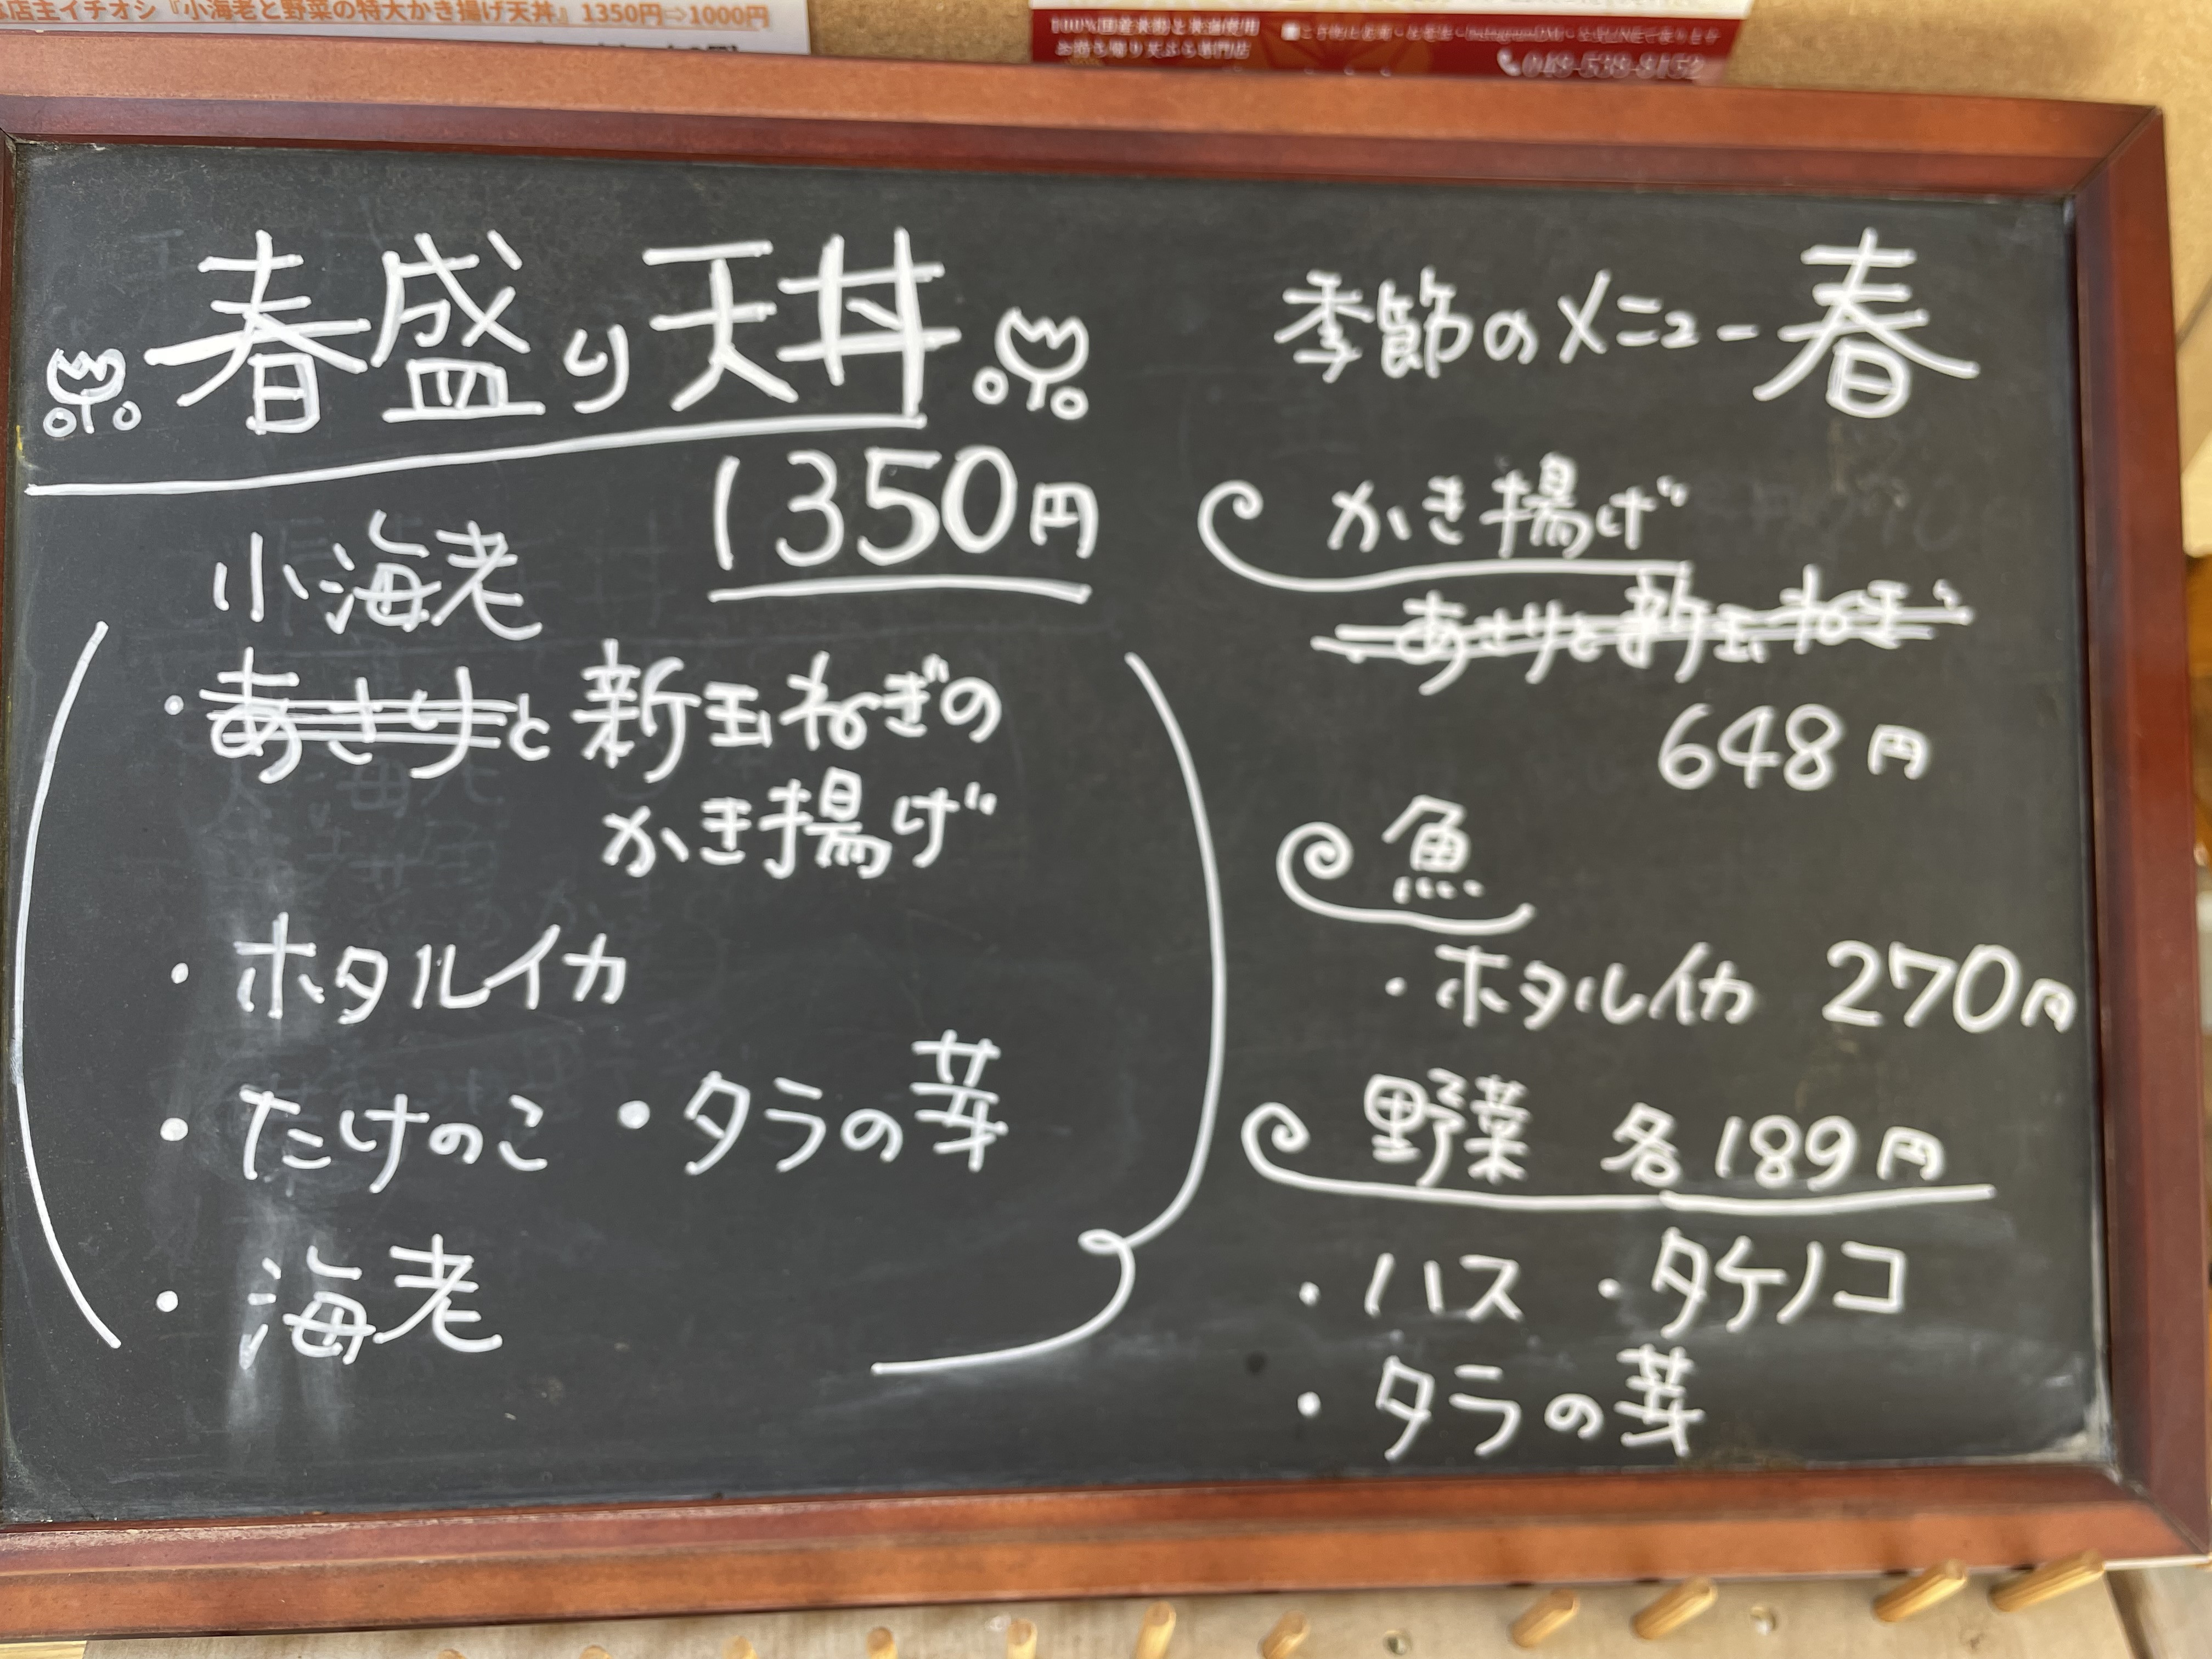 店主イチオシ『小海老と野菜の特大かき揚げ天丼』1350円⇒1000円
048-538-8152
春盛り天丼
1350円
小海老
・あさりと新玉ねぎの
かき揚げ
・ホタルイカ
・たけのこ・タラの芽
・海老
季節のメニュー春
かき揚げ
・あさりと新玉ねぎ
648円
魚
・ホタルイカ 270円
野菜 各189円
・ハス ・タケノコ
・タラの芽